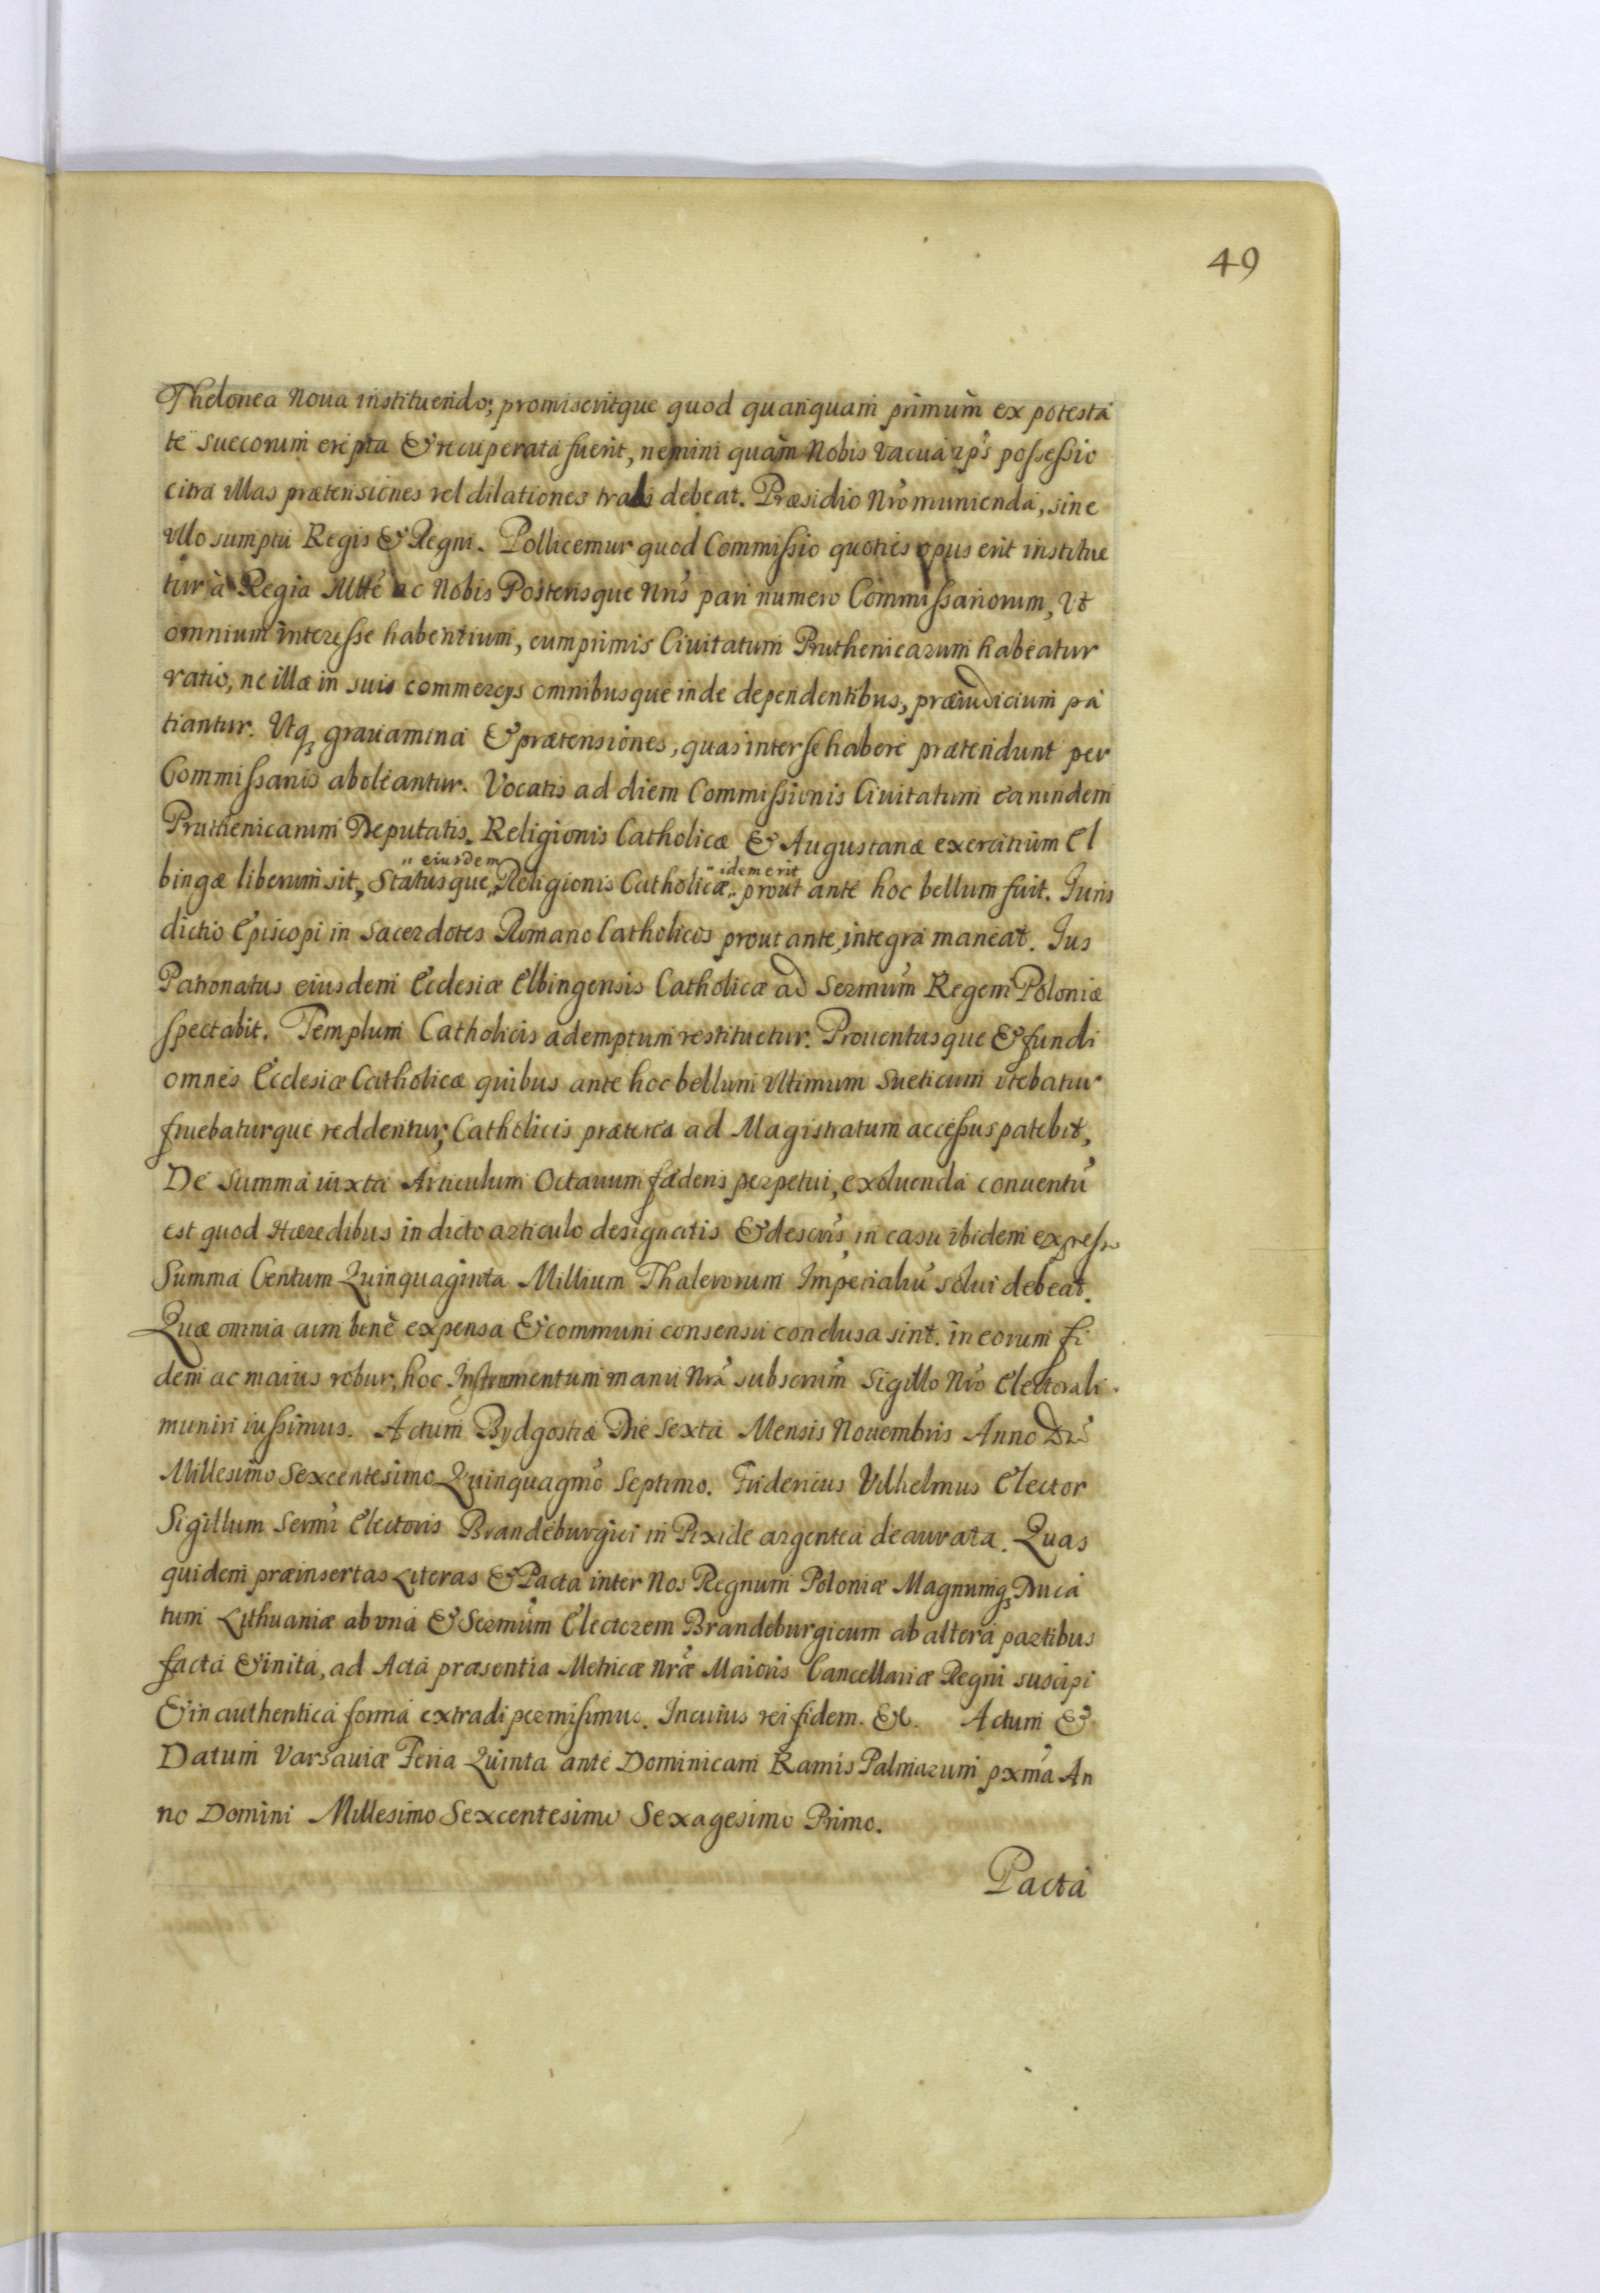 49
Thelonea Noua instituendo; promiseritque quod quanquam primum ex potesta
te suecorum erepta & recuperata fuerit, nemini quam Nobis Vacua ips possessio
citra ullas prætensiones vel dilationes tradi debeat. Præsidio Nro munienda, sine
ullo sumptu Regis & Regni. Pollicemur quod Commissio quoties opus erit institue
tur à Regia Mtte ac Nobis Posterisque Nris pari numero Commissariorum, Ut
omnium interesse habentium, cumprimis Ciuitatum Pruthenicarum habeatur
ratio, ne illæ in suis commercys omnibusque inde dependentibus, præiudicium pa
tiantur. Utq grauamina & prætensiones, quas inter se habere prætendunt per
Commissarios aboleantur. Vocatis ad diem Commissionis Ciuitatum earundem
Pruthenicarum Deputatis. Religionis Catholicæ & Augustanæ exercitium El
bingæ liberum sit, Statusque " eiusdem Religionis Catholicæ " idem erit prout ante hoc bellum fuit. Juris
dictio Episcopi in Sacerdotes Romano Catholicos prout ante, integra maneat. Jus
Patronatus eiusdem Ecclesiæ Elbingensis Catholicæ ad Sermum Regem Poloniæ
spectabit. Templum Catholicis ademptum restituetur. Prouentusque & fundi
omnes Ecclesiæ Catholicæ quibus ante hoc bellum Ultimum Sueticum utebatur
fruebaturque reddentur, Catholicis præterea ad Magistratum accessus patebit,
De Summa iuxta Articulum Octauum fæderis perpetui, exoluenda conuentu
est quod Hæredibus in dicto articulo designatis & descris in casu ibidem expresso
Summa Centum Quinquaginta Millium Thalerorum Imperialiu solui debeat.
Quæ omnia cum bene expensa & communi consensu conclusa sint. in eorum fi
dem ac maius robur, hoc Instrumentum manu Nra subscrum Sigillo Nro Electorali
muniri iussimus. Actum Bydgostiæ Die Sexta Mensis Nouembris Anno Dni
Millesimo Sexcentesimo Quinquagmo Septimo. Fridericus Vilhelmus Elector
Sigillum Sermi Electoris Brandeburgici in Pixide argentea deaurata. Quas
quidem præinsertas Literas & Pacta inter Nos Regnum Poloniæ Magnumq Duca
tum Lithuaniæ ab una & Sermum Electorem Brandeburgicum ab altera partibus
facta & inita, ad Acta præsentia Metricæ Nræ Maioris Cancellariæ Regni suscipi
& in authentica forma extradi permisimus. In cuius rei fidem. &c. Actum &
Datum Varsauiæ Feria Quinta ante Dominicam Ramis Palmarum pxma An
no Domini Millesimo Sexcentesimo Sexagesimo Primo.
Pacta